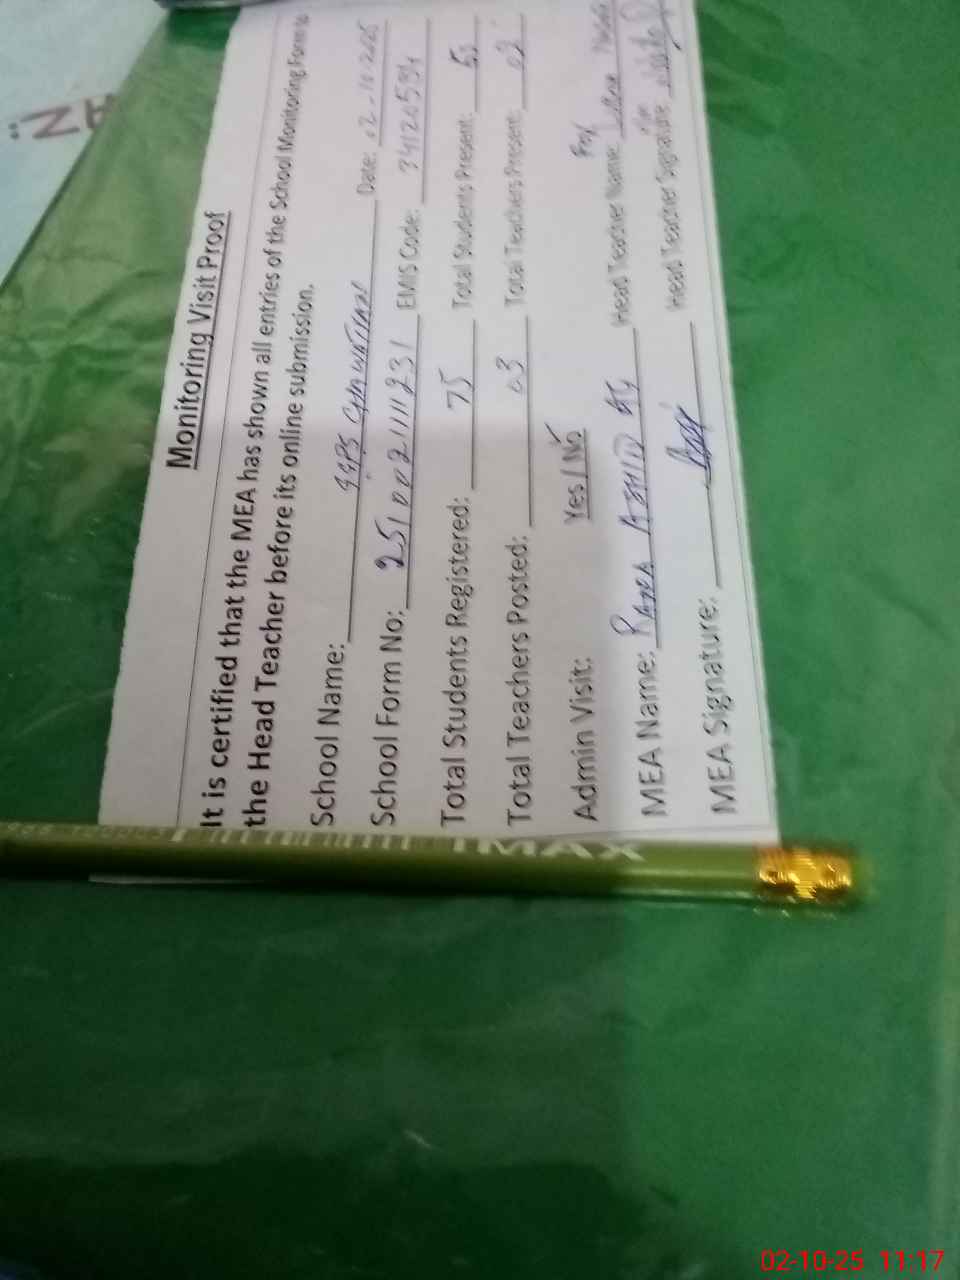 Monitoring Visit Proof
It is certified that the MEA has shown all entries of the School Monitoring Form to
the Head Teacher before its online submission.
School Name: GGPS Date: 02-10-2025
School Form No: 2510021111231 EMIS Code: 34120594
Total Students Registered: 75 Total Students Present:
Total Teachers Posted: 03 Total Teachers Present: 02
Admin Visit: Yes / No For
MEA Name: Head Teacher Name:
MEA Signature: Head Teacher Signature:
IMAX
02-10-25 11:17